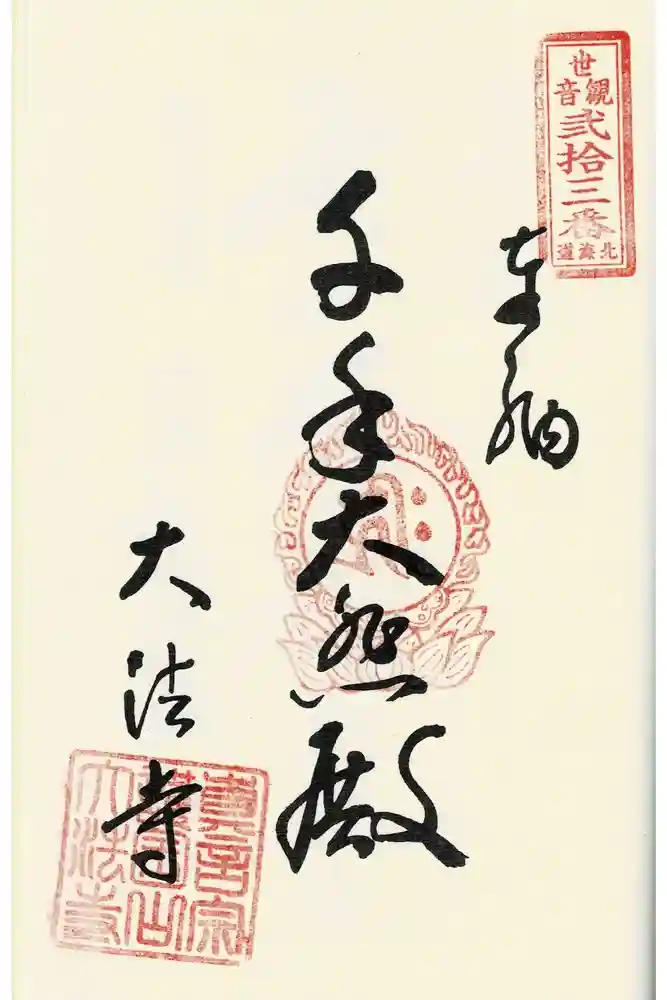 觀世音
弐拾三番
北海道
奉納
千手大悲殿
大法寺
眞言宗
大法寺